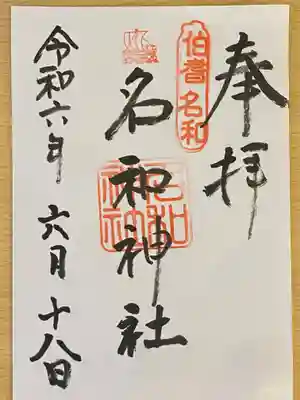 奉拝
伯耆名和
名和神社
名和神社
令和六年 六月十八日